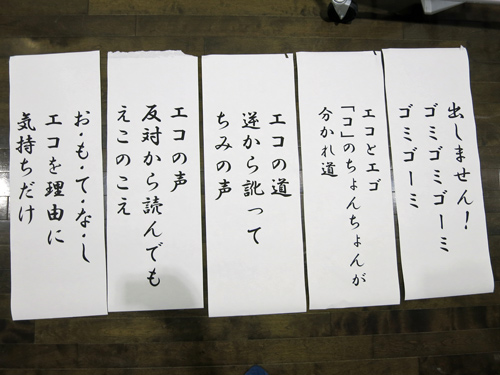 出しません!
ゴミゴミゴーミ
ゴミゴーミ
エコとエゴ
「コ」のちょんちょんが
分かれ道
エコの道
逆から訛って
ちみの声
エコの声
反対から読んでも
えこのこえ
お・も・て・な・し
エコを理由に
気持ちだけ